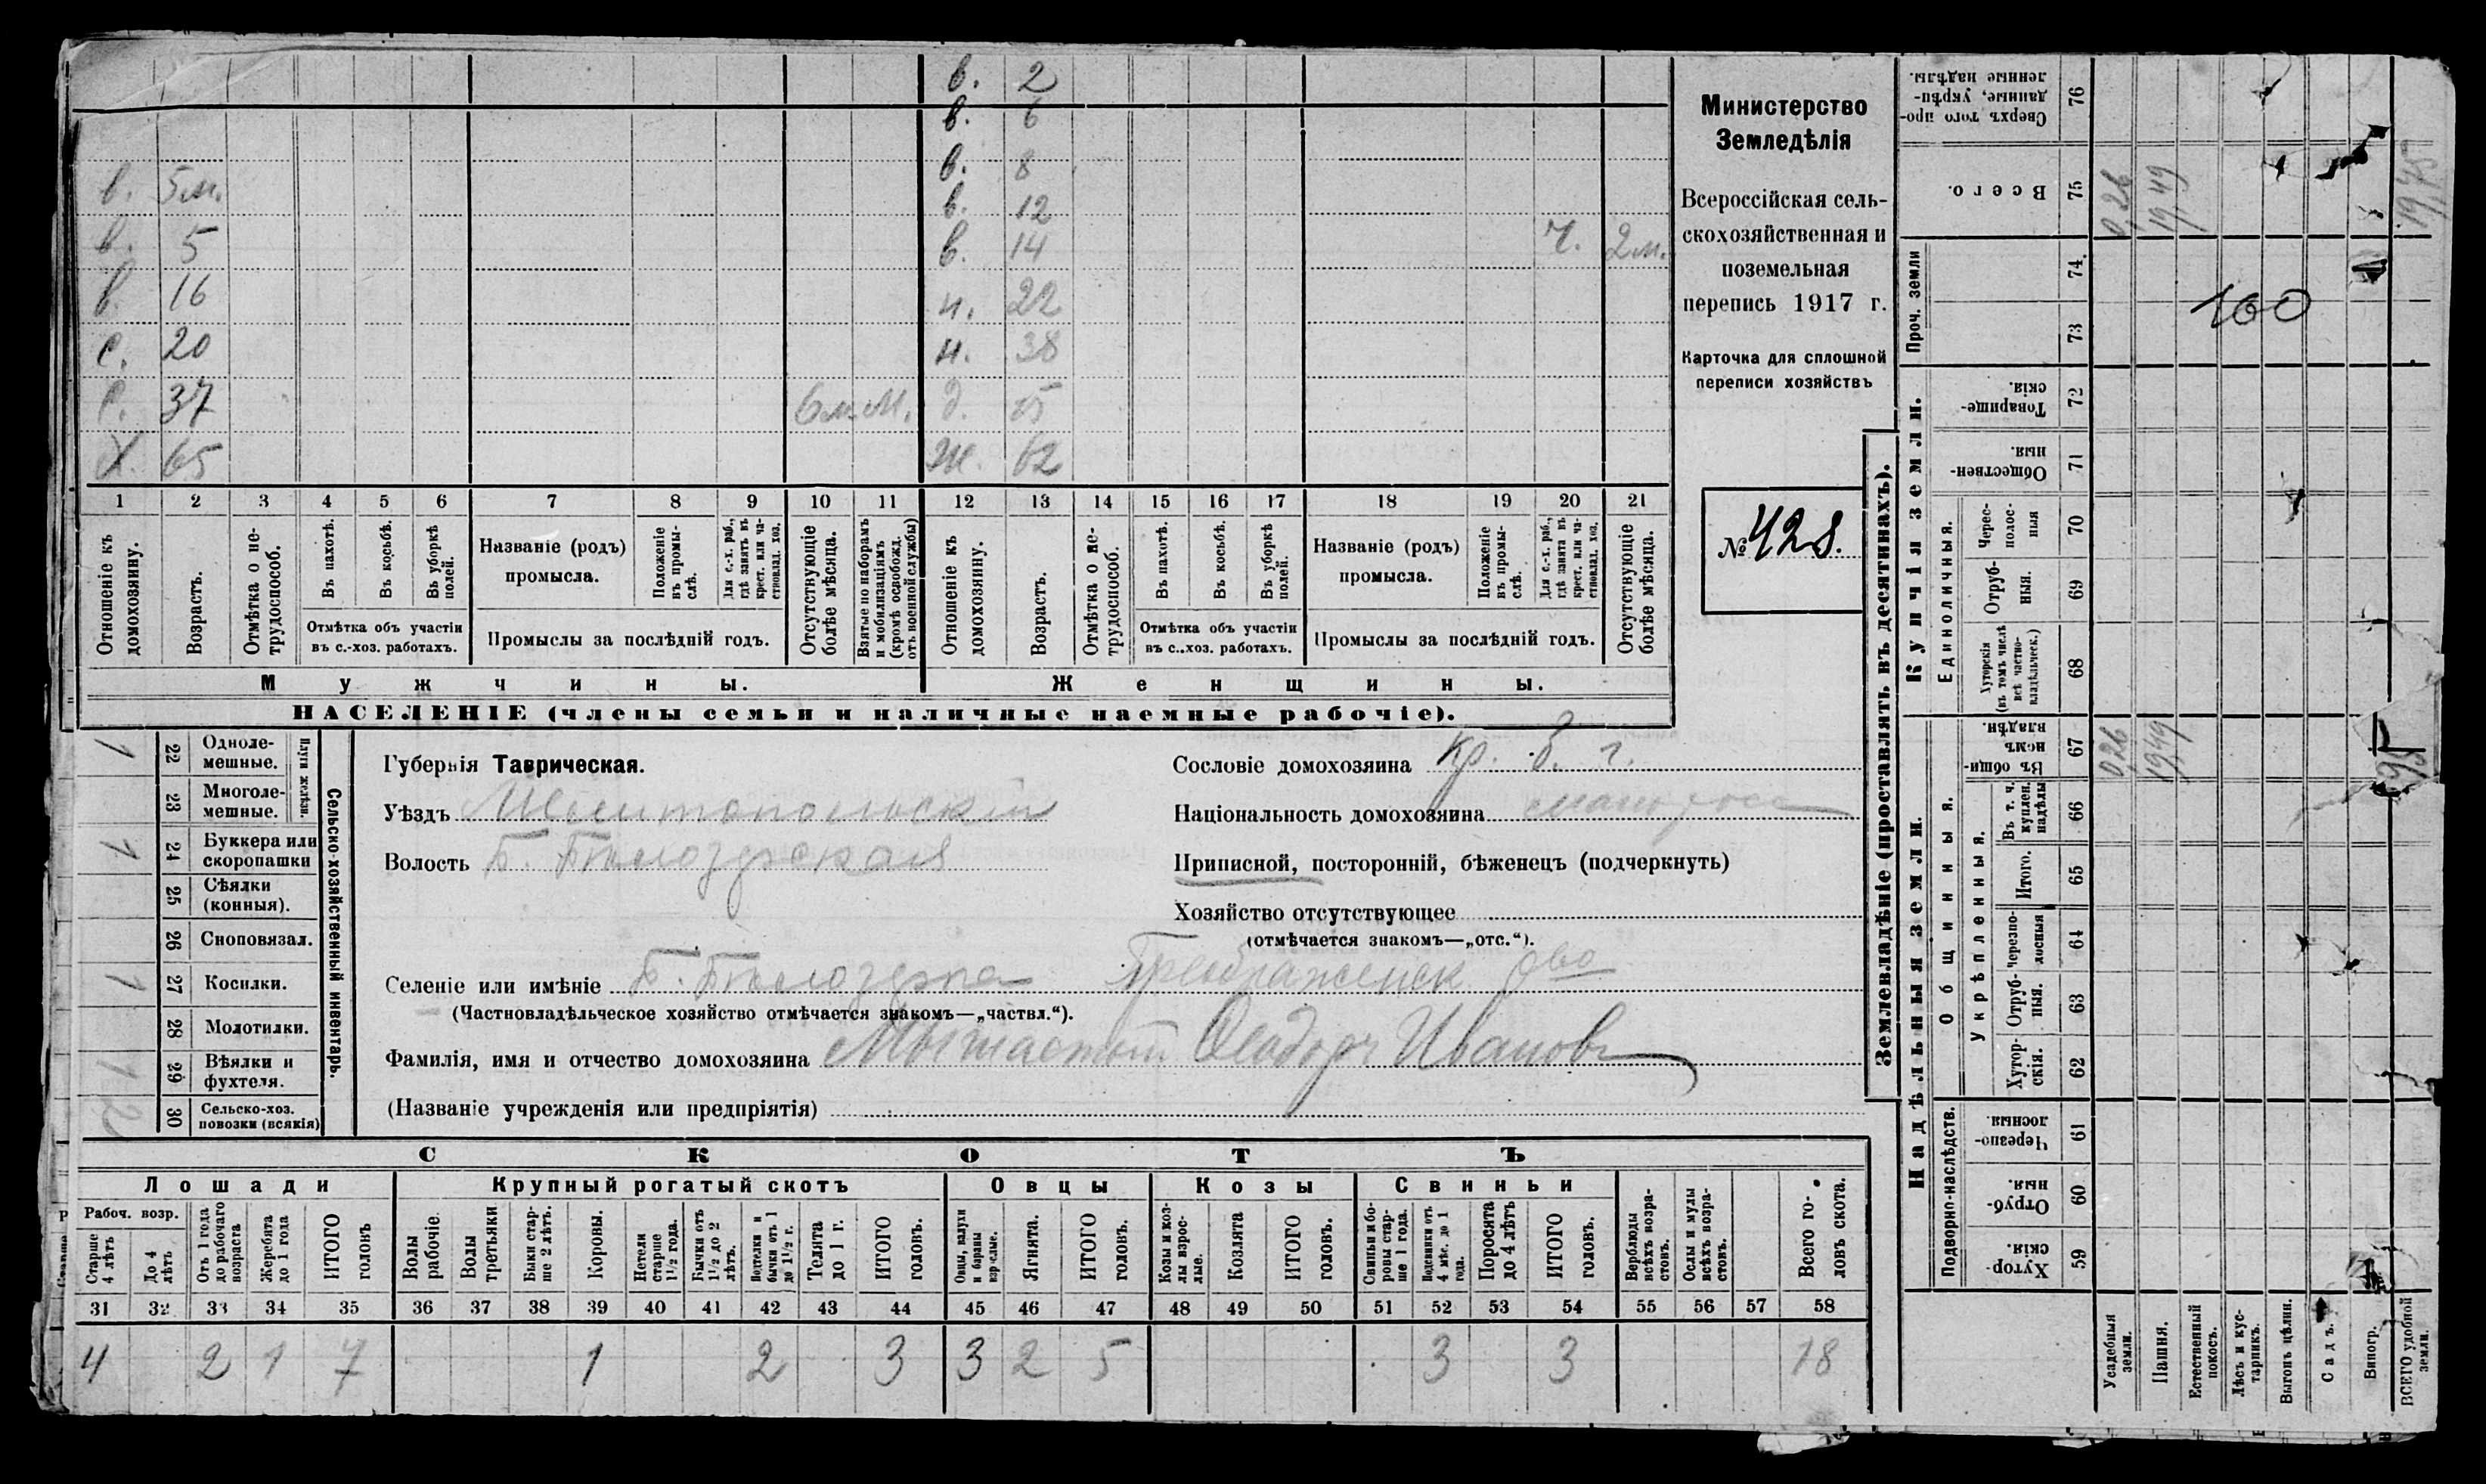 в. 2
в. 6
в. 8
в. 5м. в. 12
в. 5 в. 14 Ч. 2м.
в. 16 н. 22
С. 20 н. 38
С. 37 6м. М. д. 15
Х. 65 Ж. 62
1 2 3 4 5 6 7 8 9 10 11 12 13 14 15 16 17 18 19 20 21
Отношеніе къ домохозяину.
Возрастъ.
Отмѣтка о не-
трудоспособ.
Въ пахотѣ.
Въ косьбѣ.
Въ уборкѣ
полей.
Отмѣтка объ участіи
въ с.-хоз. работахъ.
Названіе (родъ)
промысла.
Положеніе
въ промы-
слѣ.
Для с.-х. раб.,
гдѣ занятъ въ
крест. или ча-
стновлад. хоз.
Промыслы за послѣдній годъ.
Отсутствующіе
болѣе мѣсяца.
Взятые по наборамъ
и мобилизаціямъ
(кромѣ освобожд.
отъ военной службы)
Отношеніе къ
домохозяину.
Возрастъ.
Отмѣтка о не-
трудоспособ.
Въ пахотѣ.
Въ косьбѣ.
Въ уборкѣ
полей.
Отмѣтка объ участіи
въ с..хоз. работахъ.
Названіе (родъ)
промысла.
Положеніе
въ промы-
слѣ.
Для с.-х. раб.,
гдѣ занята въ
крест. или ча-
стновлад. хоз.
Промыслы за послѣдній годъ.
Отсутствующіе
болѣе мѣсяца.
Мужчины. Женщины.
НАСЕЛЕНІЕ (члены семьи и наличные наемные рабочіе).
Министерство
Земледѣлія
Всероссійская сель-
скохозяйственная и
поземельная
перепись 1917 г.
Карточка для сплошной
переписи хозяйствъ
№ 428.
1 22 Одноле-
мешные.
23 Многоле-
мешные.
Плуги желѣзн.
1 24 Буккера или
скоропашки
25 Сѣялки
(конныя).
26 Сноповязал.
1 27 Косилки.
28 Молотилки.
1 29 Вѣялки и
фухтеля.
2 30 Сельско-хоз.
повозки (всякія)
Сельско-хозяйственный инвентарь.
Губернія Таврическая.
Уѣздъ Мелитопольскій
Волость Б. Бѣлозерская
Сословіе домохозяина кр. б. г.
Національность домохозяина малоросс
Приписной, посторонній, бѣженецъ (подчеркнуть)
Хозяйство отсутствующее
(отмѣчается знакомъ—„отс.“).
Селеніе или имѣніе Б. Бѣлозерка Преображенск. Ово
(Частновладѣльческое хозяйство отмѣчается знакомъ—„частвл.“).
Фамилія, имя и отчество домохозяина Ѳеодоръ Ивановъ
(Названіе учрежденія или предпріятія)
СКОТЪ
Лошади Крупный рогатый скотъ Овцы Козы Свиньи
Рабоч. возр.
Старше
4 лѣтъ
До 4
лѣтъ
Отъ 1 года
до рабочаго
возраста
Жеребята
до 1 года
ИТОГО
головъ
Волы
рабочіе.
Волы
третьяки
Быки стар-
ше 2 лѣтъ.
Коровы.
Нетели
старше
1½ года.
Бычки отъ
1½ до 2
лѣтъ.
Подтелки и
бычки отъ 1
до 1½ г.
Телята
до 1 г.
ИТОГО
головъ.
Овцы, валухи
и бараны
взрослые.
Ягнята.
ИТОГО
головъ.
Козы и коз-
лы взрос-
лые.
Козлята
ИТОГО
головъ.
Свиньи и бо-
ровы стар-
ше 1 года.
Подсвинки отъ
4 мѣс. до 1
года.
Поросята
до 4 лѣтъ
ИТОГО
головъ.
Верблюды
всѣхъ возра-
стовъ.
Ослы и мулы
всѣхъ возра-
стовъ.
Всего го-
ловъ скота.
31 32 33 34 35 36 37 38 39 40 41 42 43 44 45 46 47 48 49 50 51 52 53 54 55 56 57 58
4 2 1 7 1 2 3 3 2 5 3 3 18
Землевладѣніе (проставлять въ десятинахъ).
Купчія земли.
Надѣльныя земли.
Проч. земли
Единоличныя.
Общинныя.
Укрѣпленныя.
Подворно-наслѣдств.
Сверхъ того про-
данные, укрѣп-
ленные надѣлы. 76
Всего. 75 0,26 19,49 19,75
74.
73
160
Товарище-
скія. 72
Обществен-
ныя. 71
Черес-
полос-
ныя 70
Отруб-
ныя. 69
Хуторскія
(въ томъ числѣ
всѣ частно-
владѣльческ.) 68
Въ общи-
номъ
владѣн. 67 0,26 19,49
Въ т. ч.
куплен.
надѣлы 66
Итого. 65
Черезпо-
лосныя 64
Отруб-
ныя. 63
Хутор-
скія. 62
Черезпо-
лосныя 61
Отруб-
ныя. 60
Хутор-
скія. 59
Усадебныя
земли.
Пашня.
Естественный
покосъ.
Лѣсъ и кус-
тарникъ.
Выгонъ цѣлин.
Садъ.
Виногр.
ВСЕГО удобной
земли.